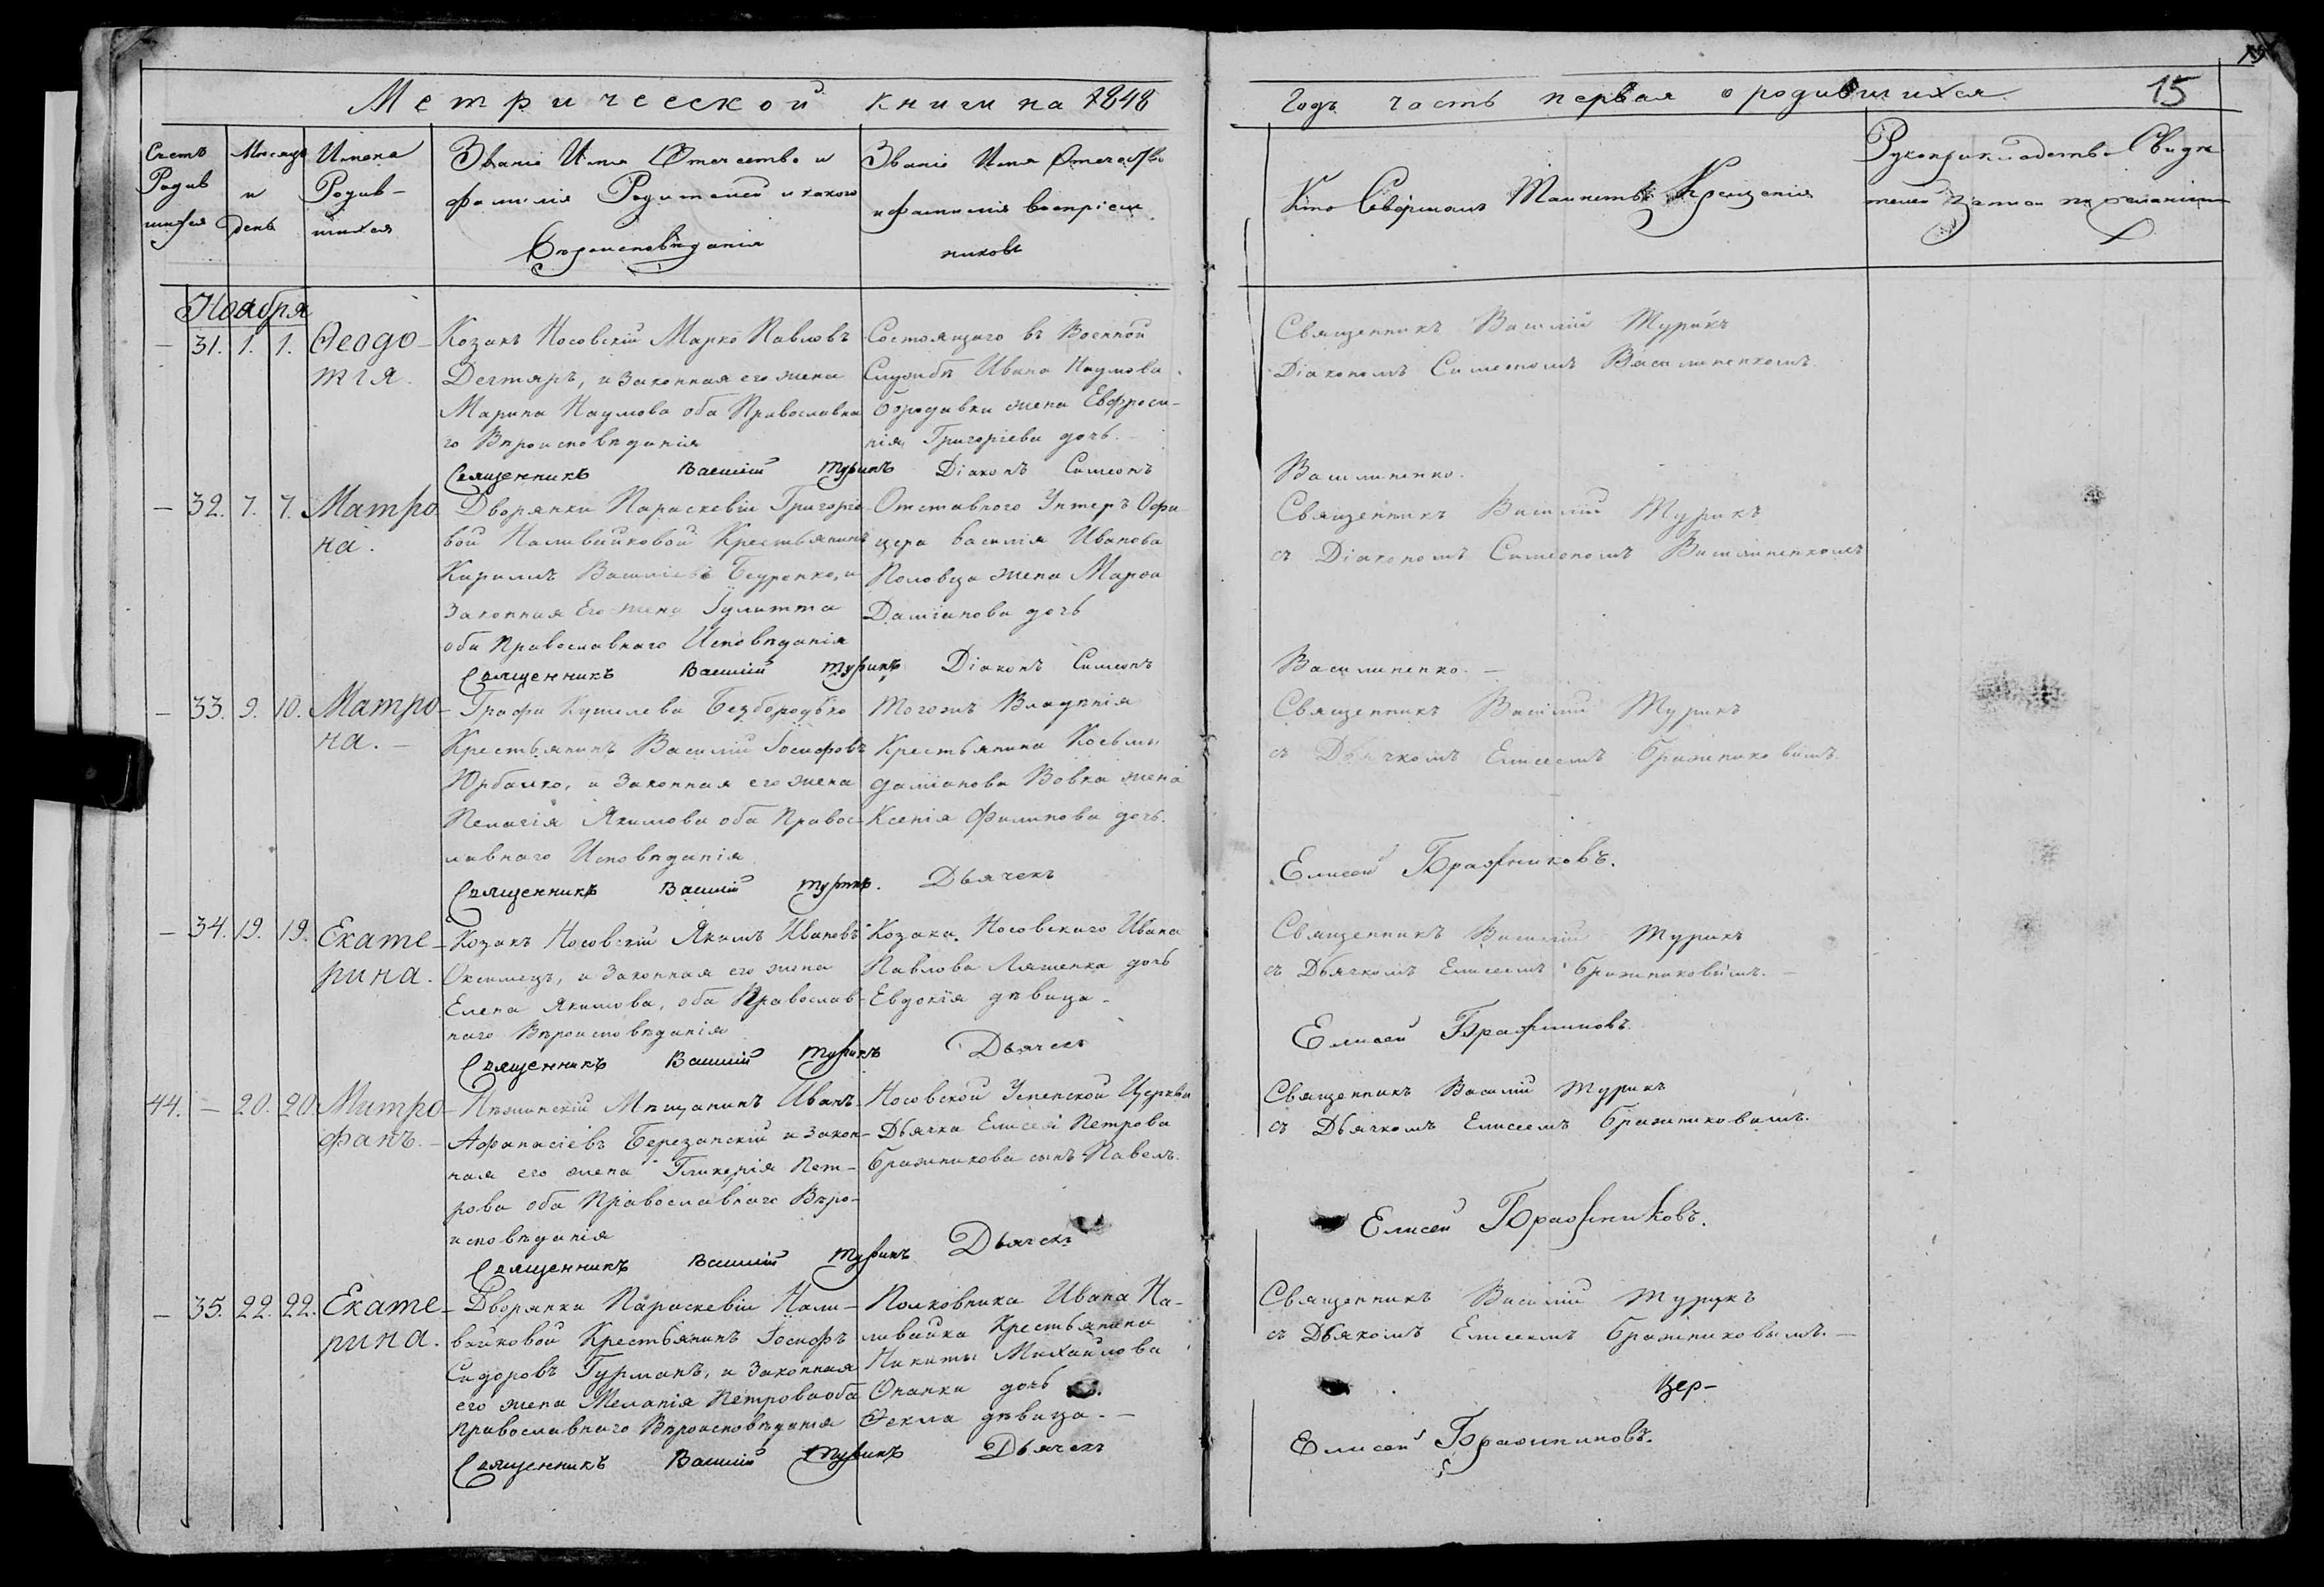 Метрической книги на 1848
Счетъ Родив шихся
Месяцъ и день
Имена Родив-шихся
Званіе Имя Отечество и
фамилія Родителей и какого
Вѣроисповѣданія
Званіе Имя Отечество
и фамилія воспріем
никовъ
Ноября
— 31. 1. 1. Ѳеодо-
тія.
Козакъ Носовскій Марко Павловъ
Дегтяръ, и Законная его жена
Марина Наумова оба Православна
го Вѣроисповѣданія
Состоящаго въ Военной
Службѣ Ивана Наумова
Бородавки жена Евфроси-
нія Григоріева дочь.
Священникъ Василій Турикъ Діаконъ Симеонъ
— 32. 7. 7. Матро
на.
Дворянки Параскевіи Григоріе
вой Наливайковой Крестьянинъ
Кирилъ Василіевъ и
Законная Его жена Іулитта
оба Православнаго Исповѣданія
Отставного Унтеръ Офи
цера Василія Иванова
Половца жена Марѳа
Даміанова дочь
Священникъ Василій Турикъ Діаконъ Симеонъ
— 33. 9. 10. Матро-
на. —
Графа Кушелева Безбородько
Крестьянинъ Василій Іосифовъ
и Законная его жена
Пелагія Якимова оба Правос-
лавнаго Исповѣданія
Тогожъ Владѣнія
Крестьянина Косьмы
Даміанова Вовка жена
Ксенія Филипова дочь.
Священникъ Василій Турикъ. Дьячекъ
— 34. 19. 19. Екате-
рина.
Козакъ Носовскій Якимъ Ивановъ
и Законная его жена
Елена Якимова, оба Православ-
наго Вѣроисповѣданія
Козака Носовскаго Ивана
Павлова Ляшенка дочь
Евдокія дѣвица.
Священникъ Василій Турикъ Дьячекъ
44. — 20. 20. Митро-
фанъ. —
Нѣжинскій Мѣщанинъ Иванъ
Афанасіевъ Березанскій и Закон-
ная его жена Гликерія Пет-
рова оба Православнаго Вѣро-
исповѣданія
Носовской Успенской Церкви
Дьячка Елисея Петрова
Бражникова сынъ Павелъ.
Священникъ Василій Турикъ Дьячекъ
— 35. 22. 22. Екате-
рина.
Дворянки Параскевіи Нали-
вайковой Крестьянинъ Іосифъ
Сидоровъ Гурманъ, и Законная
его жена Меланія Петрова оба
Православнаго Вѣроисповѣданія
Полковника Ивана На-
ливайка Крестьянина
Никиты Михайлова
Опанки дочь
Ѳекла дѣвица. —
Священникъ Василій Турикъ Дьячекъ
Годъ часть первая о родившихся 15
Кто Совершалъ Таинство Крещенія
Рукоприкладство Свидѣ
телей записи по желанію
Священникъ Василій Турикъ
Діакономъ Симеономъ Василиненкомъ
Василиненко.
Священникъ Василій Турикъ
съ Діакономъ Симеономъ Василиненкомъ
Василиненко. —
Священникъ Василій Турикъ
съ Дьячкомъ Елисеемъ Бражниковымъ.
Елисей Бражниковъ.
Священникъ Василій Турикъ
съ Дьячкомъ Елисеемъ Бражниковымъ. —
Елисей Бражниковъ.
Священникъ Василій Турикъ
съ Дьячкомъ Елисеемъ Бражниковымъ.
Елисей Бражниковъ.
Священникъ Василій Турикъ
съ Дьякомъ Елисеемъ Бражниковымъ. —
Цер-
Елисей Бражниковъ.